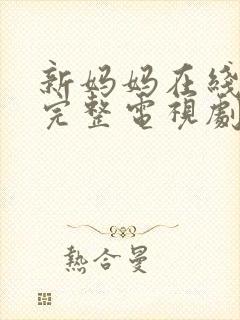 新妈妈在线
完整電視劇
熱合曼